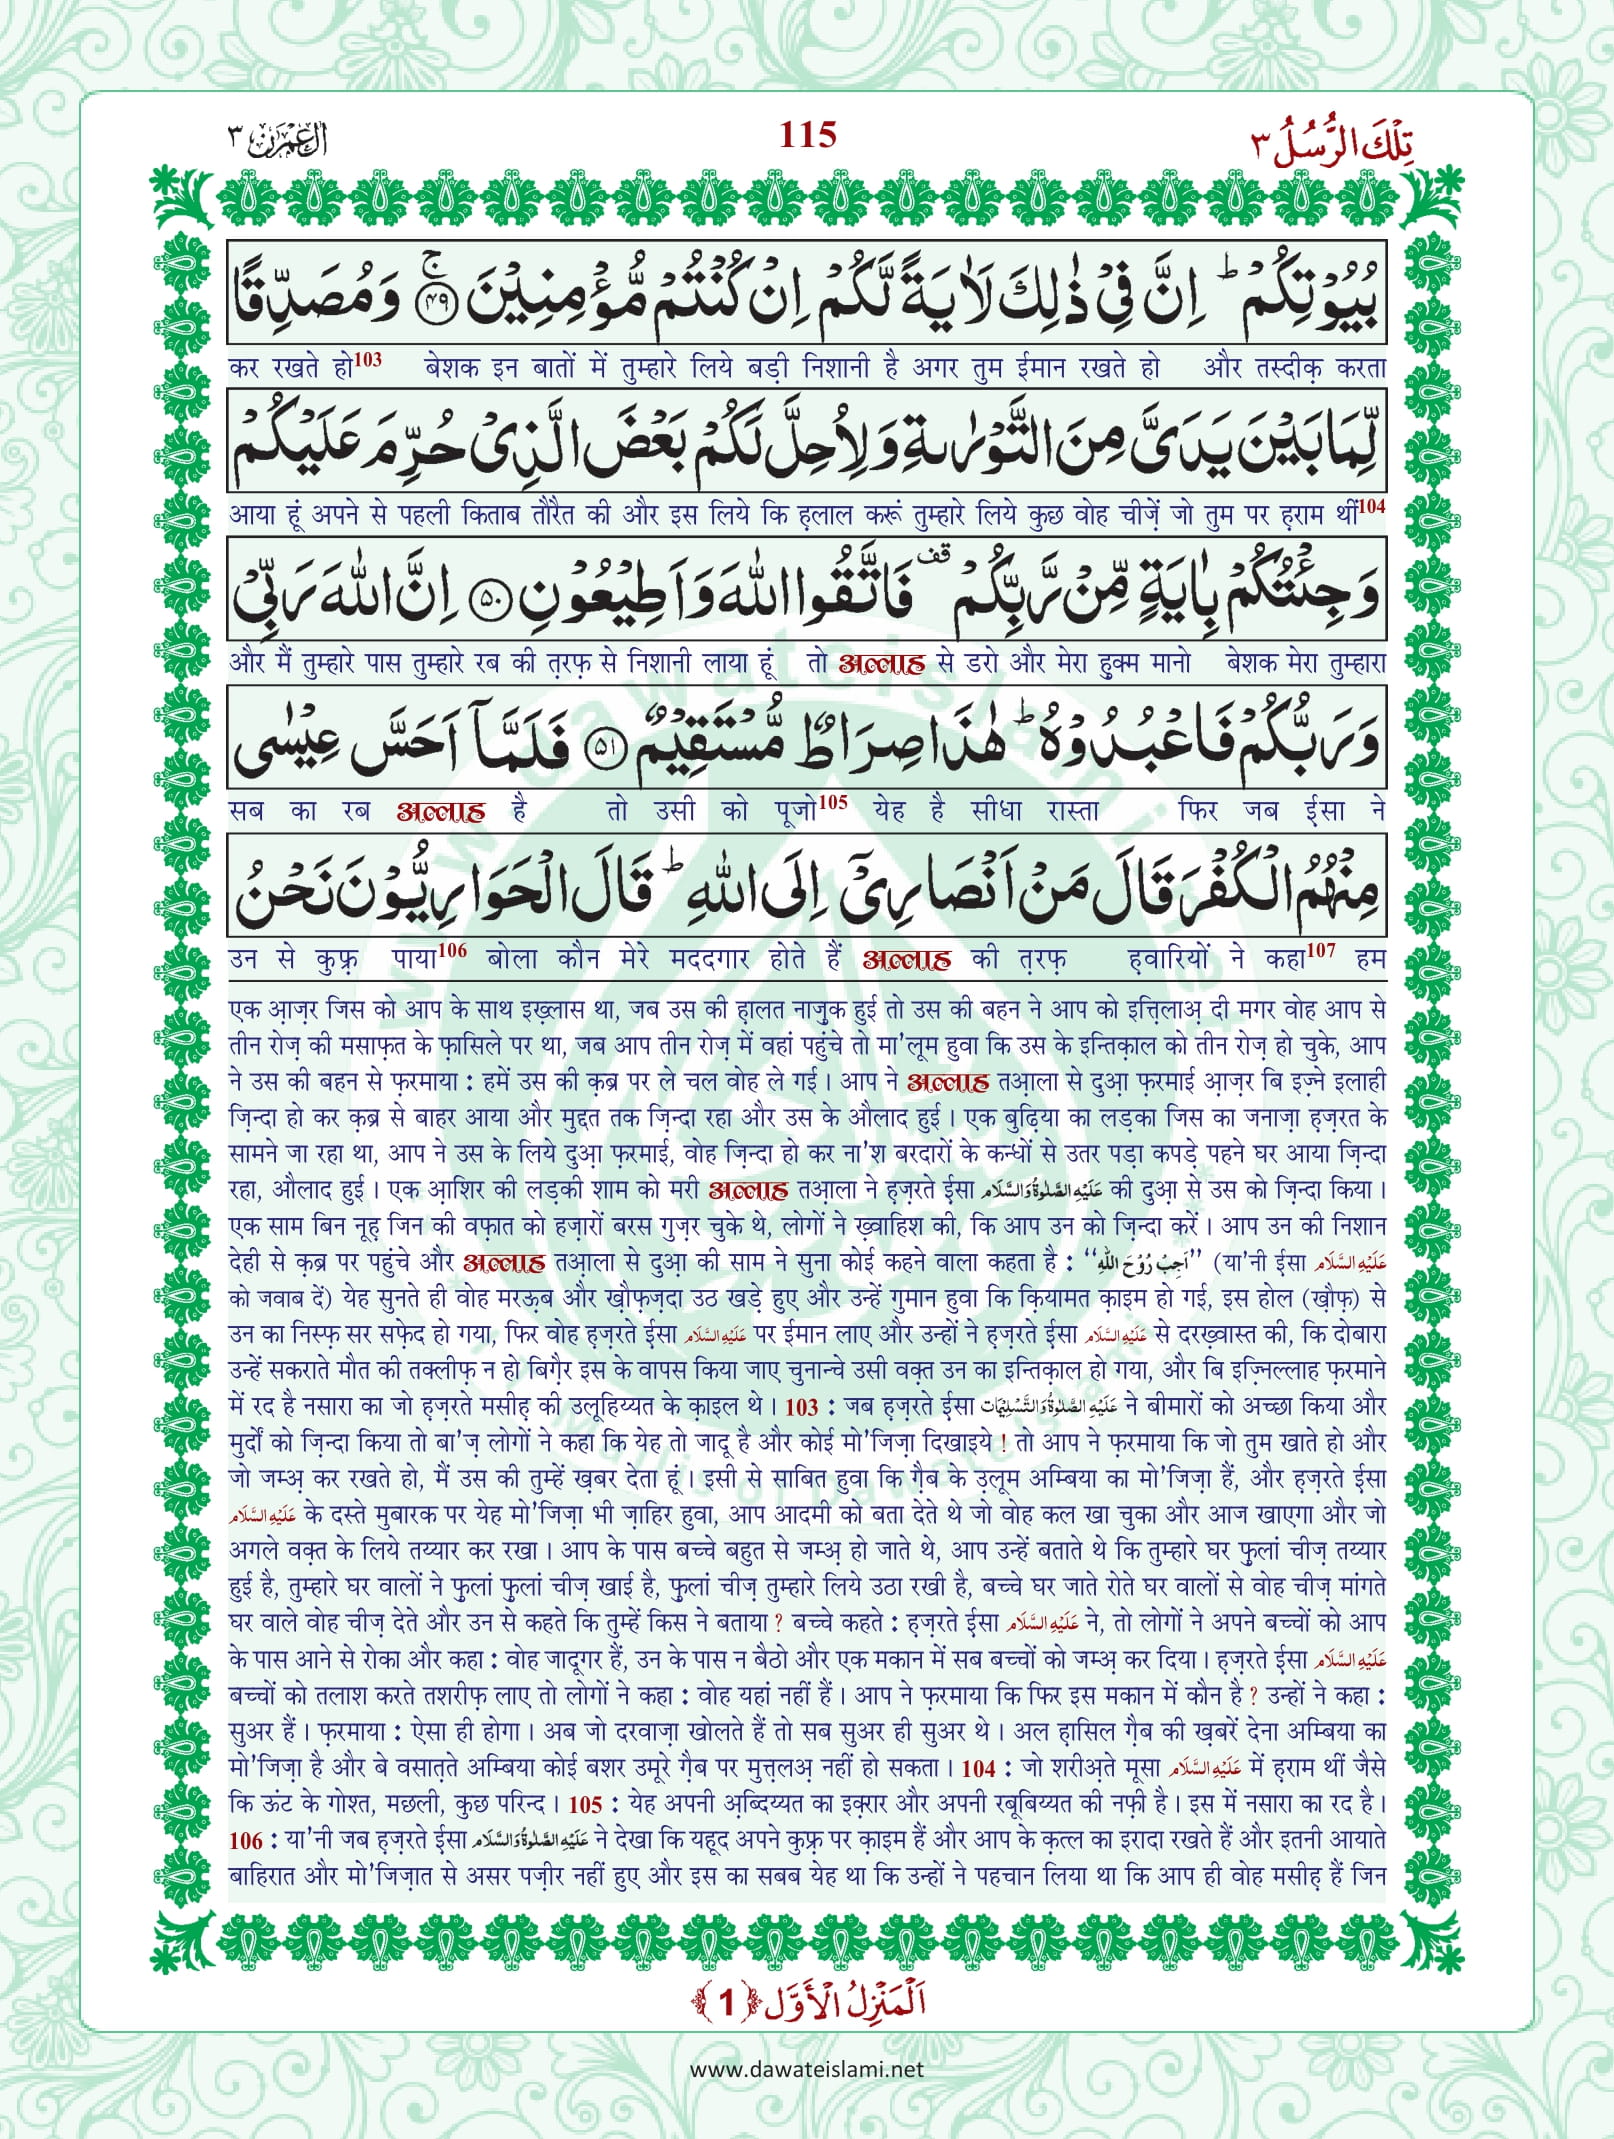 تِلْكَ الرُّسُلُ ٣
115
اٰلِ عِمْرٰن ٣
بُيُوْتِكُمْ ؕ اِنَّ فِیْ ذٰلِكَ لَاٰیَةً لَّكُمْ اِنْ كُنْتُمْ مُّؤْمِنِیْنَۚ ﴿۴۹﴾ وَ مُصَدِّقًا
कर रखते हो103 बेशक इन बातों में तुम्हारे लिये बड़ी निशानी है अगर तुम ईमान रखते हो और तस्दीक़ करता
لِّمَا بَیْنَ یَدَیَّ مِنَ التَّوْرٰىةِ وَ لِاُحِلَّ لَكُمْ بَعْضَ الَّذِیْ حُرِّمَ عَلَیْكُمْ
आया हूं अपने से पहली किताब तौरैत की और इस लिये कि ह़लाल करूं तुम्हारे लिये कुछ वोह चीज़ें जो तुम पर ह़राम थीं104
وَ جِئْتُكُمْ بِاٰیَةٍ مِّنْ رَّبِّكُمْ ۫ قف فَاتَّقُوا اللّٰهَ وَ اَطِیْعُوْنِ ﴿۵۰﴾ اِنَّ اللّٰهَ رَبِّیْ
और मैं तुम्हारे पास तुम्हारे रब की त़रफ़ से निशानी लाया हूं तो अल्लाह से डरो और मेरा हुक्म मानो बेशक मेरा तुम्हारा
وَ رَبُّكُمْ فَاعْبُدُوْهُ ؕ هٰذَا صِرَاطٌ مُّسْتَقِیْمٌ ﴿۵۱﴾ فَلَمَّاۤ اَحَسَّ عِیْسٰى
सब का रब अल्लाह है तो उसी को पूजो105 येह है सीधा रास्ता फिर जब ईसा ने
مِنْهُمُ الْكُفْرَ قَالَ مَنْ اَنْصَارِیْۤ اِلَى اللّٰهِ ؕ قَالَ الْحَوَارِیُّوْنَ نَحْنُ
उन से कुफ़्र पाया106 बोला कौन मेरे मददगार होते हैं अल्लाह की त़रफ़ ह़वारियों ने कहा107 हम
एक आ़ज़र जिस को आप के साथ इख़्लास था, जब उस की ह़ालत नाज़ुक हुई तो उस की बहन ने आप को इत्त़िलाअ़ दी मगर वोह आप से
तीन रोज़ की मसाफ़त के फ़ासिले पर था, जब आप तीन रोज़ में वहां पहुंचे तो मा'लूम हुवा कि उस के इन्तिक़ाल को तीन रोज़ हो चुके, आप
ने उस की बहन से फ़रमाया : हमें उस की क़ब्र पर ले चल वोह ले गई। आप ने अल्लाह तआ़ला से दुआ़ फ़रमाई आ़ज़र बि इज़्ने इलाही
ज़िन्दा हो कर क़ब्र से बाहर आया और मुद्दत तक ज़िन्दा रहा और उस के औलाद हुई। एक बुढ़िया का लड़का जिस का जनाज़ा ह़ज़रत के
सामने जा रहा था, आप ने उस के लिये दुआ़ फ़रमाई, वोह ज़िन्दा हो कर ना'श बरदारों के कन्धों से उतर पड़ा कपड़े पहने घर आया ज़िन्दा
रहा, औलाद हुई। एक आ़शिर की लड़की शाम को मरी अल्लाह तआ़ला ने ह़ज़रते ईसा عَلَیْہِ الصَّلٰوۃُ وَالسَّلَام की दुआ़ से उस को ज़िन्दा किया।
एक साम बिन नूह़ जिन की वफ़ात को हज़ारों बरस गुज़र चुके थे, लोगों ने ख़्वाहिश की, कि आप उन को ज़िन्दा करें। आप उन की निशान
देही से क़ब्र पर पहुंचे और अल्लाह तआ़ला से दुआ़ की साम ने सुना कोई कहने वाला कहता है : ”اَجِبْ رُوْحَ اللّٰہِ“ (या'नी ईसा عَلَیْہِ السَّلَام
को जवाब दें) येह सुनते ही वोह मरऊ़ब और ख़ौफ़ज़दा उठ खड़े हुए और उन्हें गुमान हुवा कि क़ियामत क़ाइम हो गई, इस होल (ख़ौफ़) से
उन का निस्फ़ सर सफ़ेद हो गया, फिर वोह ह़ज़रते ईसा عَلَیْہِ السَّلَام पर ईमान लाए और उन्हों ने ह़ज़रते ईसा عَلَیْہِ السَّلَام से दरख़्वास्त की, कि दोबारा
उन्हें सकराते मौत की तक्लीफ़ न हो बिग़ैर इस के वापस किया जाए चुनान्चे उसी वक़्त उन का इन्तिक़ाल हो गया, और बि इज़्निल्लाह फ़रमाने
में रद है नसारा का जो ह़ज़रते मसीह़ की उलूहिय्यत के क़ाइल थे। 103 : जब ह़ज़रते ईसा عَلَیْہِ الصَّلٰوۃُ وَالتَّسْلِیْمَات ने बीमारों को अच्छा किया और
मुर्दों को ज़िन्दा किया तो बा'ज़ लोगों ने कहा कि येह तो जादू है और कोई मो'जिज़ा दिखाइये ! तो आप ने फ़रमाया कि जो तुम खाते हो और
जो जम्अ़ कर रखते हो, मैं उस की तुम्हें ख़बर देता हूं। इसी से साबित हुवा कि ग़ैब के उ़लूम अम्बिया का मो'जिज़ा हैं, और ह़ज़रते ईसा
عَلَیْہِ السَّلَام के दस्ते मुबारक पर येह मो'जिज़ा भी ज़ाहिर हुवा, आप आदमी को बता देते थे जो वोह कल खा चुका और आज खाएगा और जो
अगले वक़्त के लिये तय्यार कर रखा। आप के पास बच्चे बहुत से जम्अ़ हो जाते थे, आप उन्हें बताते थे कि तुम्हारे घर फ़ुलां चीज़ तय्यार
हुई है, तुम्हारे घर वालों ने फ़ुलां फ़ुलां चीज़ खाई है, फ़ुलां चीज़ तुम्हारे लिये उठा रखी है, बच्चे घर जाते रोते घर वालों से वोह चीज़ मांगते
घर वाले वोह चीज़ देते और उन से कहते कि तुम्हें किस ने बताया ? बच्चे कहते : ह़ज़रते ईसा عَلَیْہِ السَّلَام ने, तो लोगों ने अपने बच्चों को आप
के पास आने से रोका और कहा : वोह जादूगर हैं, उन के पास न बैठो और एक मकान में सब बच्चों को जम्अ़ कर दिया। ह़ज़रते ईसा عَلَیْہِ السَّلَام
बच्चों को तलाश करते तशरीफ़ लाए तो लोगों ने कहा : वोह यहां नहीं हैं। आप ने फ़रमाया कि फिर इस मकान में कौन है ? उन्हों ने कहा :
सुअर हैं। फ़रमाया : ऐसा ही होगा। अब जो दरवाज़ा खोलते हैं तो सब सुअर ही सुअर थे। अल ह़ासिल ग़ैब की ख़बरें देना अम्बिया का
मो'जिज़ा है और बे वसात़ते अम्बिया कोई बशर उमूरे ग़ैब पर मुत्त़लअ़ नहीं हो सकता। 104 : जो शरीअ़ते मूसा عَلَیْہِ السَّلَام में ह़राम थीं जैसे
कि ऊंट के गोश्त, मछली, कुछ परिन्द। 105 : येह अपनी अ़ब्दिय्यत का इक़्रार और अपनी रबूबिय्यत की नफ़ी है। इस में नसारा का रद है।
106 : या'नी जब ह़ज़रते ईसा عَلَیْہِ الصَّلٰوۃُ وَالسَّلَام ने देखा कि यहूद अपने कुफ़्र पर क़ाइम हैं और आप के क़त्ल का इरादा रखते हैं और इतनी आयाते
बाहिरात और मो'जिज़ात से असर पज़ीर नहीं हुए और इस का सबब येह था कि उन्हों ने पहचान लिया था कि आप ही वोह मसीह़ हैं जिन
اَلْمَنْزِلُ الْاَوَّل ﴿1﴾
www.dawateislami.net